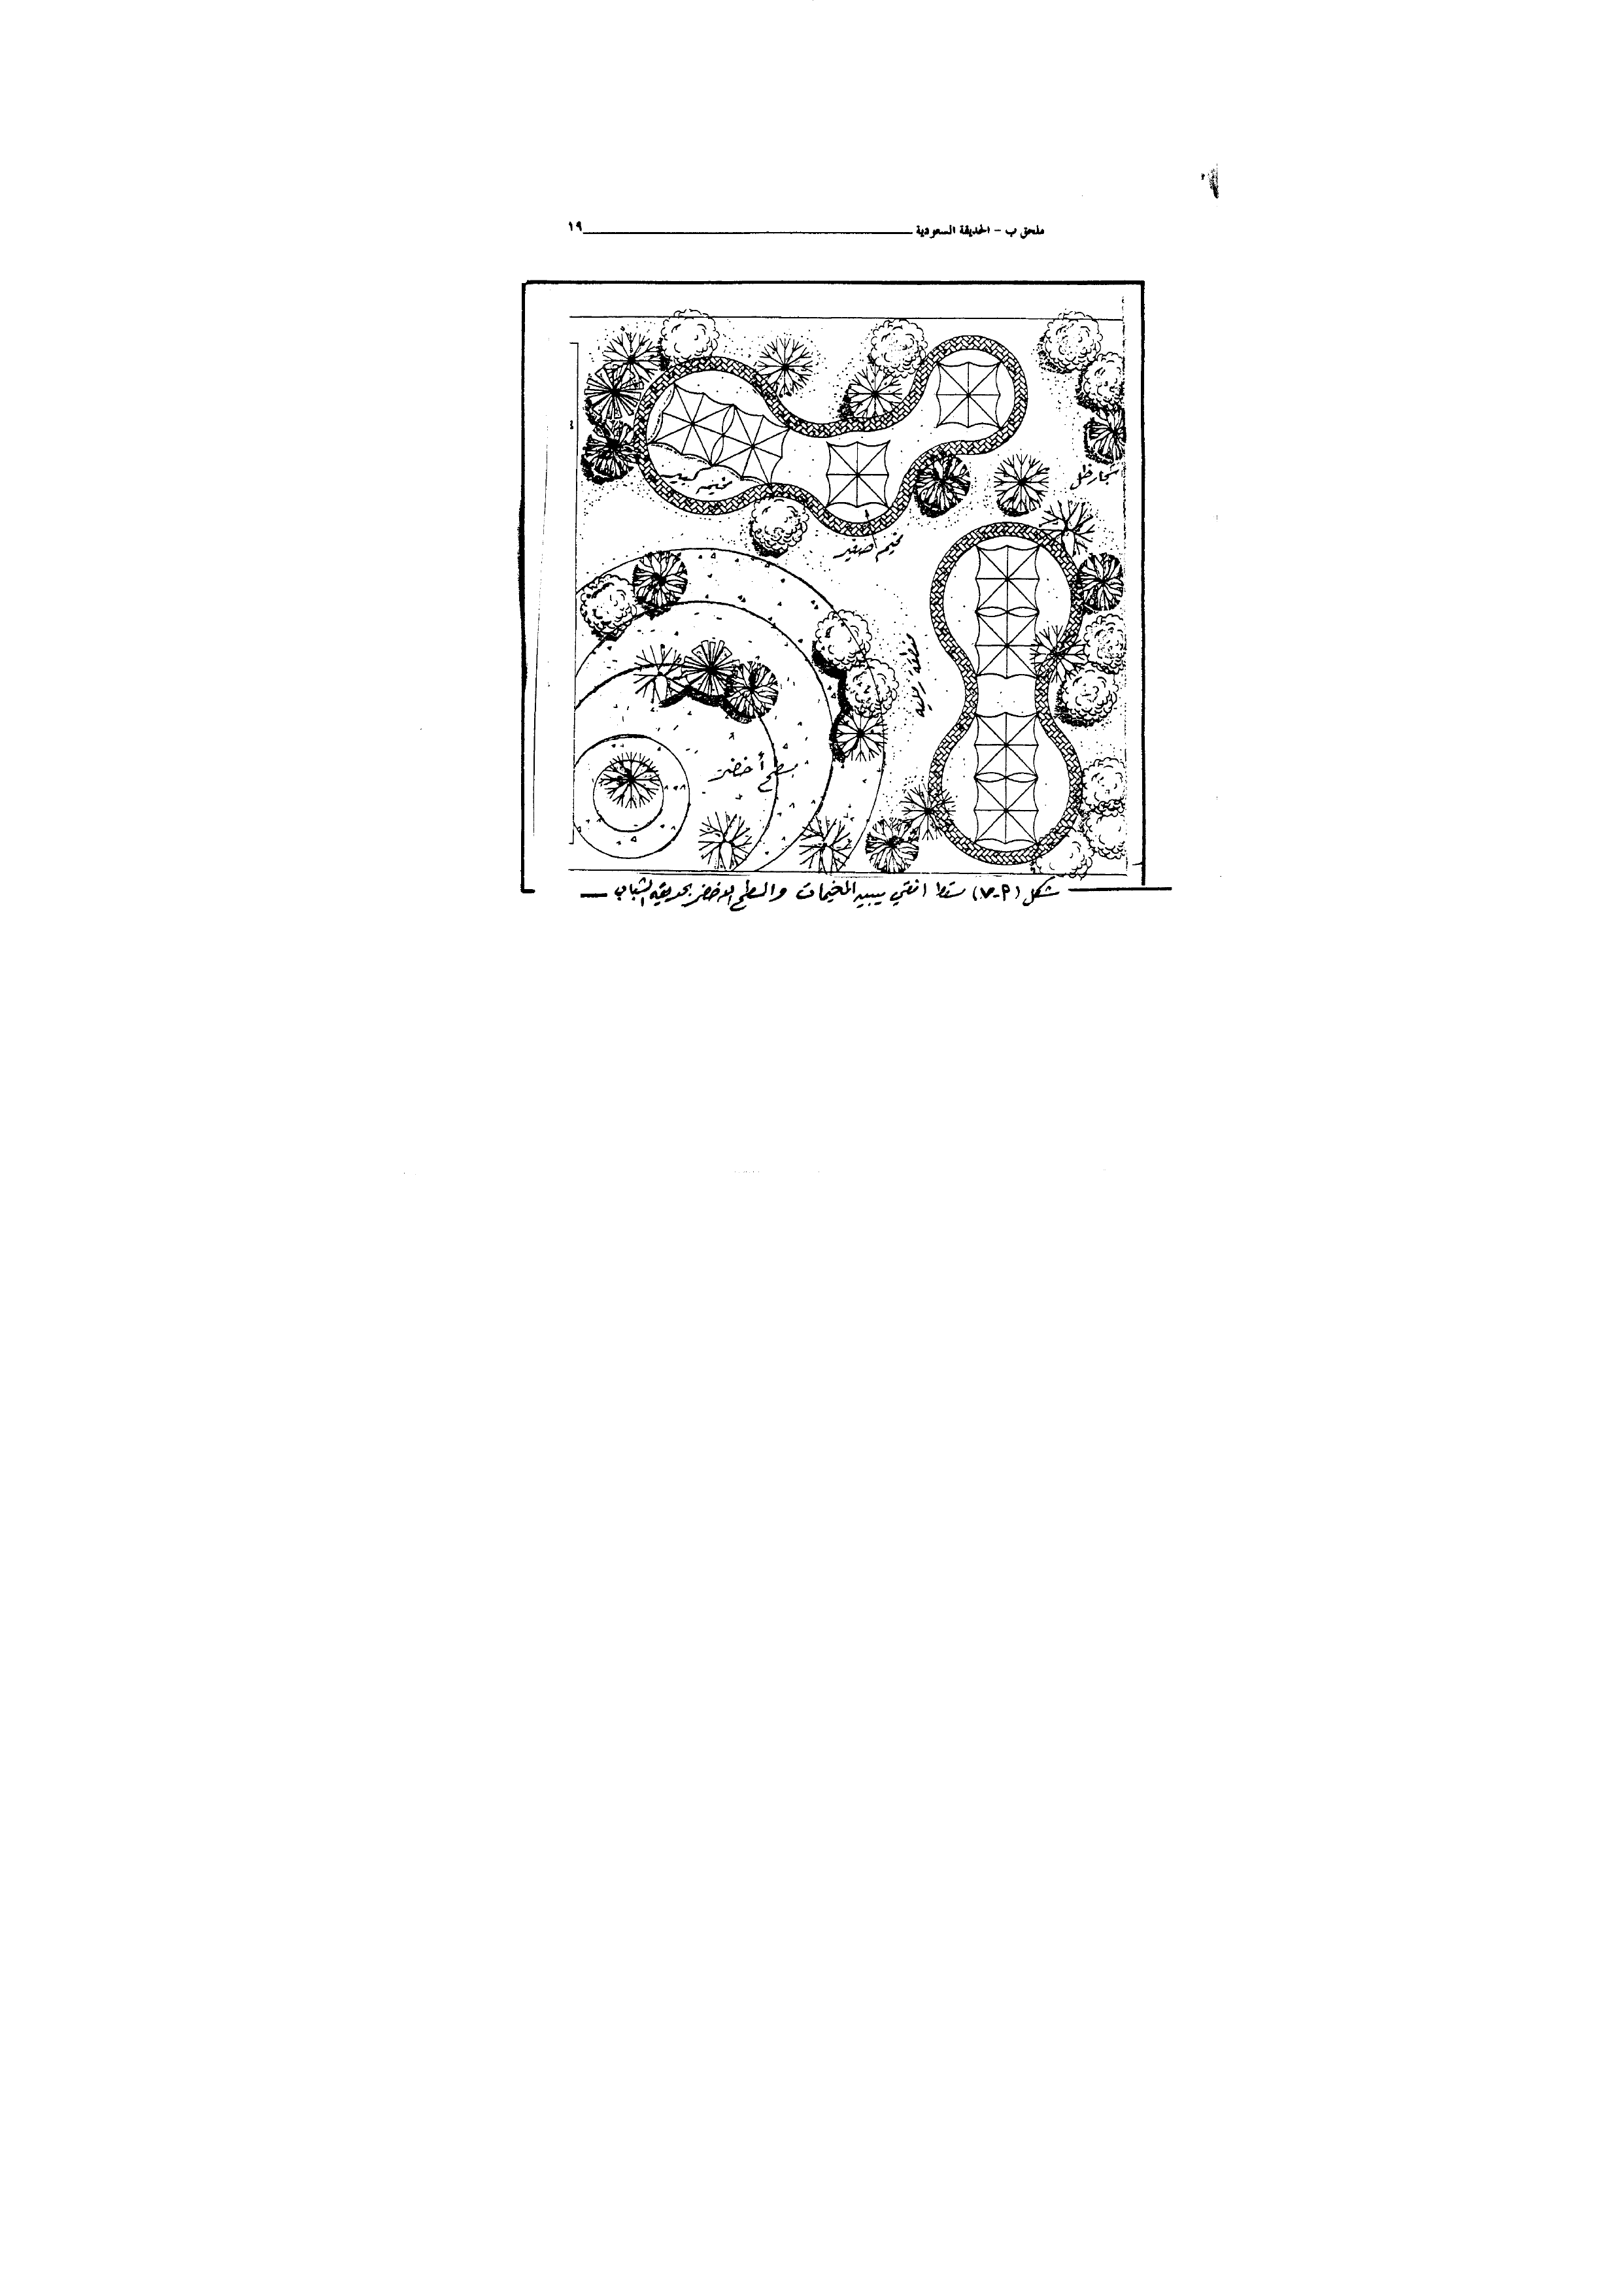 ملحق ب - الحديقة السعودية ١٩
أشجار ظل
مخيم كبير
مخيم صغير
مسطح أخضر
شكل (٧-٢) مسقط افقي يبين المخيمات والسطح الاخضر بحديقة الشباب